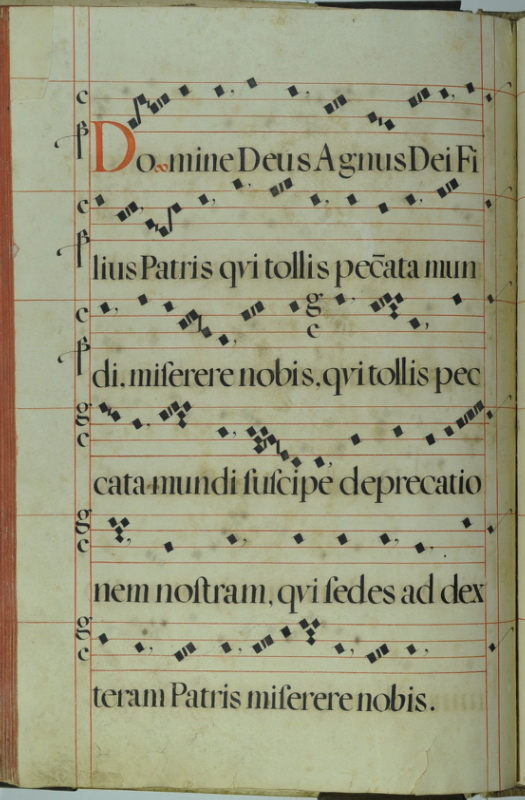 Domine Deus Agnus Dei Fi
lius Patris qvi tollis pec̄ata mun
di. miſerere nobis. qvi tollis pec
cata mundi ſuſcipe deprecatio
nem noſtram, qvi ſedes ad dex
teram Patris miſerere nobis.